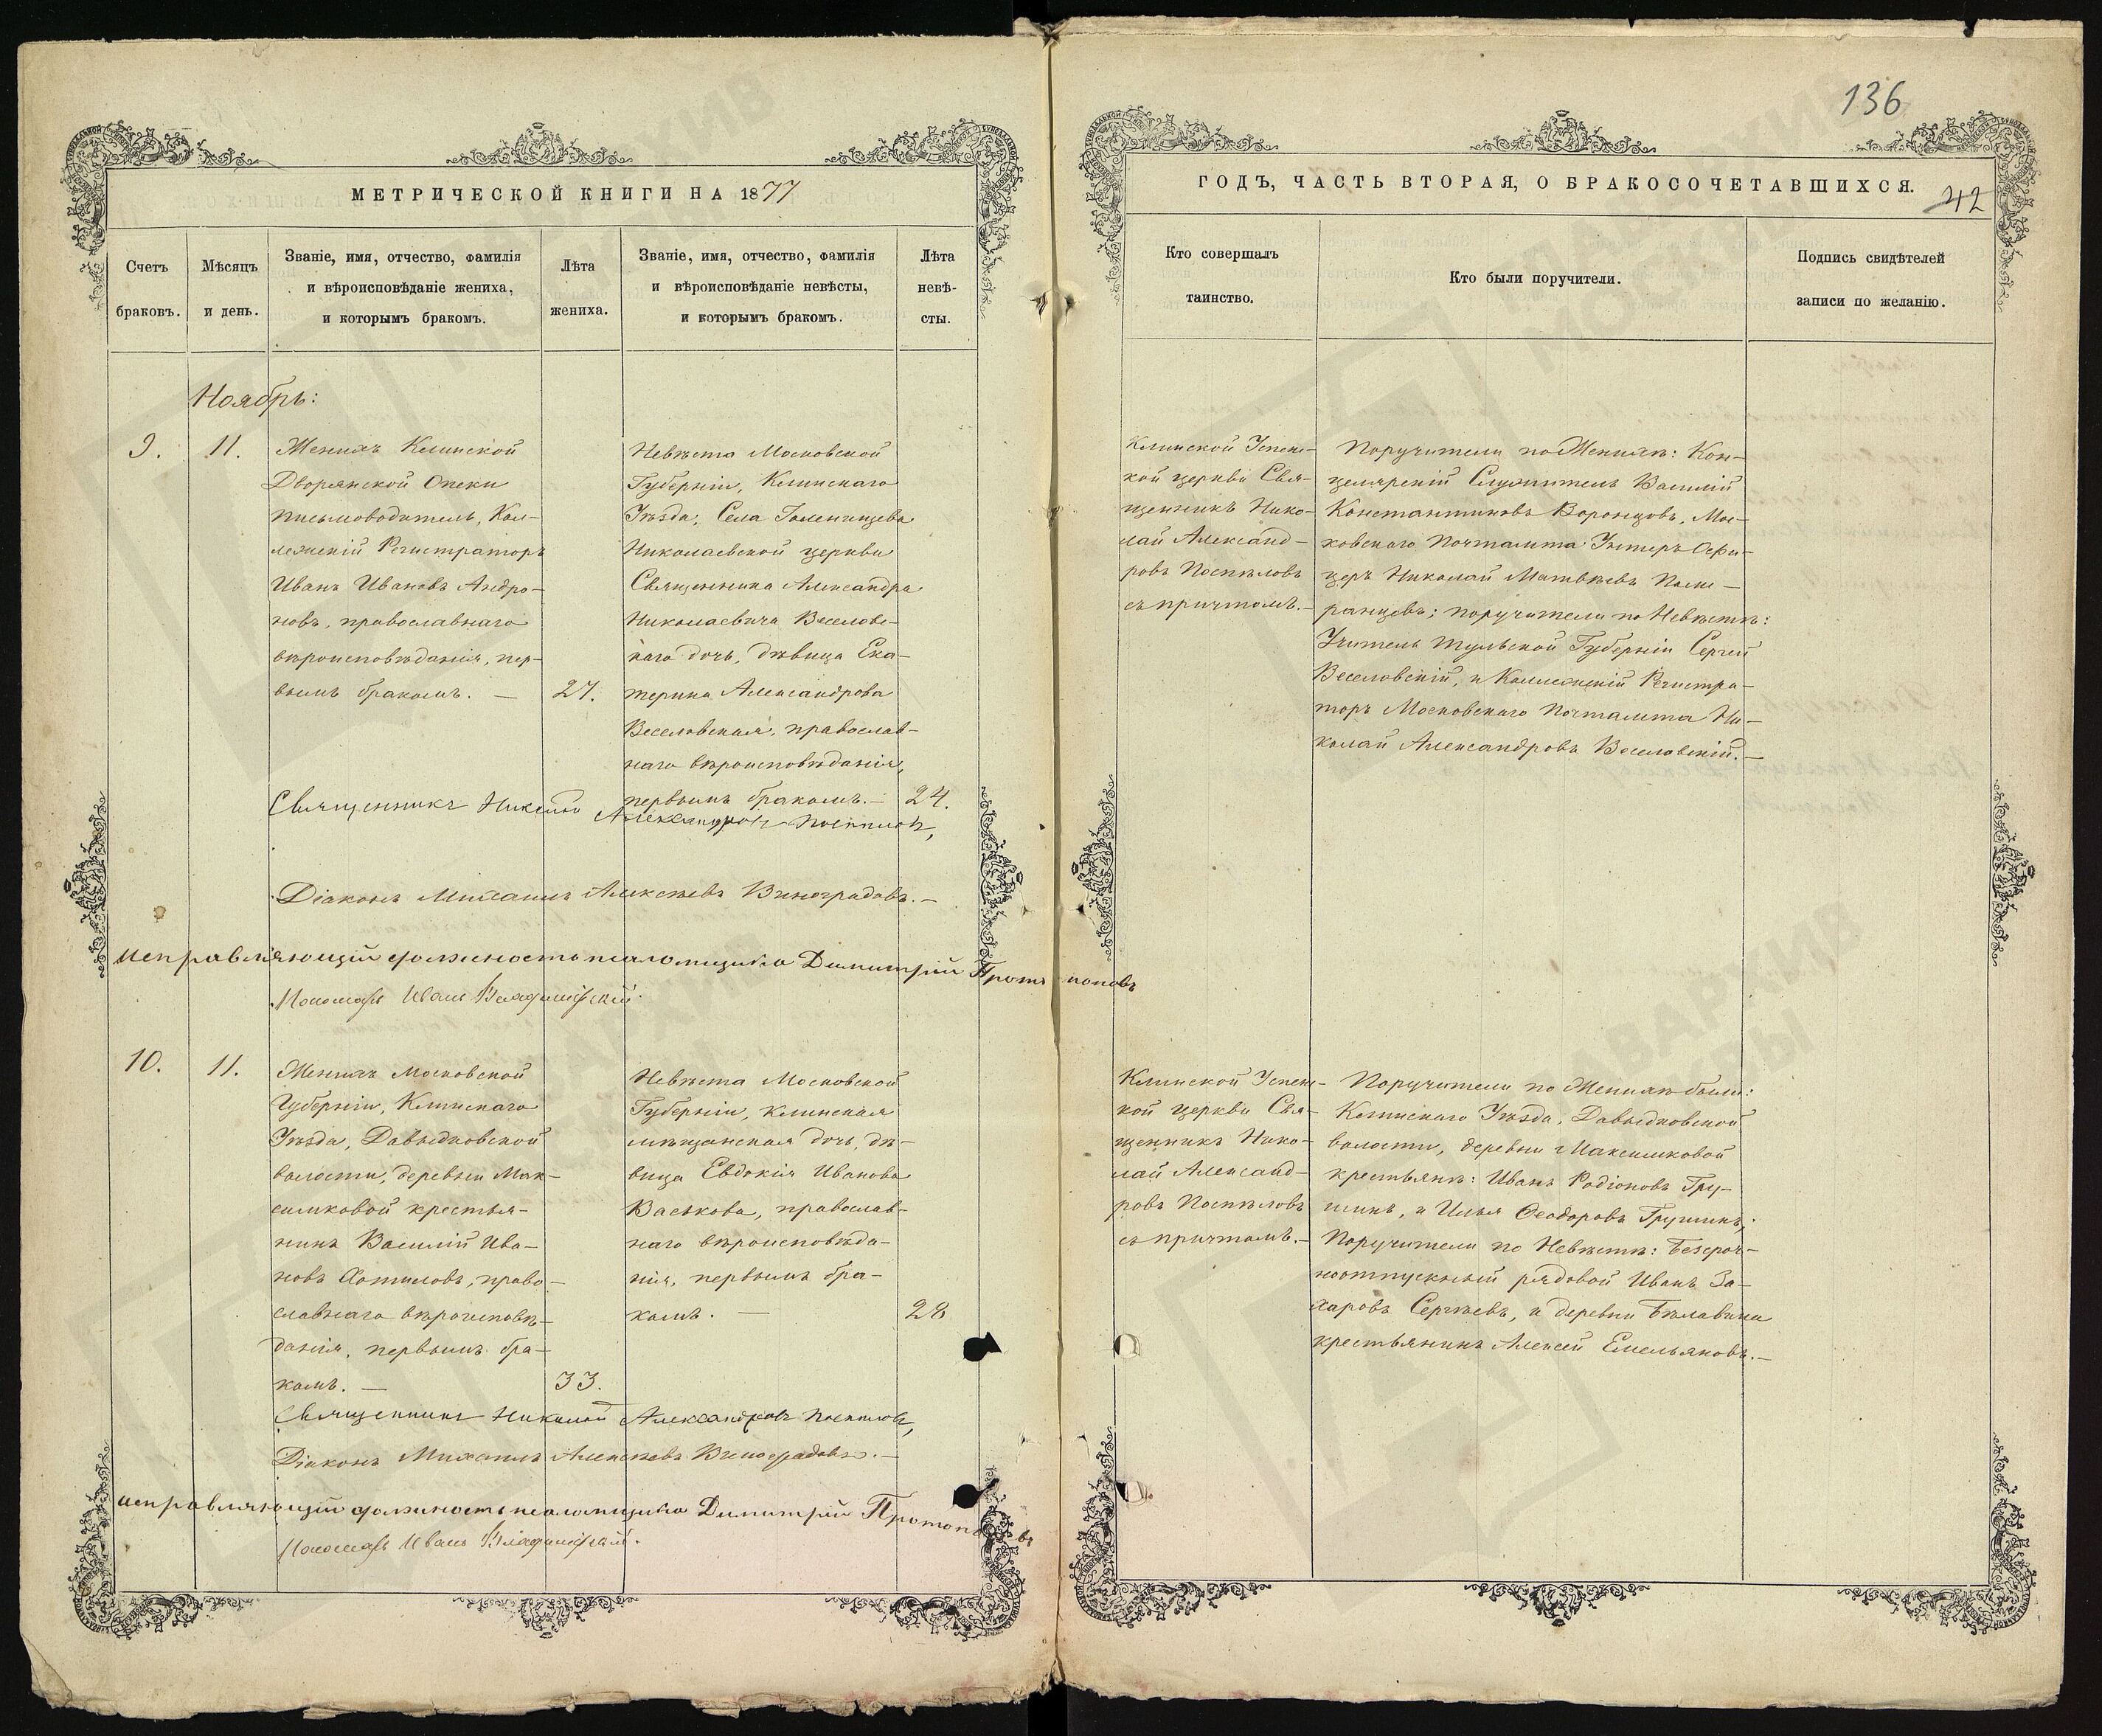 136
МЕТРИЧЕСКОЙ КНИГИ НА 1877
ГОДЪ, ЧАСТЬ ВТОРАЯ, О БРАКОСОЧЕТАВШИХСЯ.
42
Счетъ
браковъ.
Мѣсяцъ
и день.
Званіе, имя, отчество, фамилія
и вѣроисповѣданіе жениха,
и которымъ бракомъ.
Лѣта
жениха.
Званіе, имя, отчество, фамилія
и вѣроисповѣданіе невѣсты,
и которымъ бракомъ.
Лѣта
невѣ-
сты.
Кто совершалъ
таинство.
Кто были поручители.
Подпись свидѣтелей
записи по желанію.
Ноябрь:
9.
11.
Женихъ Клинской
Дворянской Опеки
письмоводитель, Кол-
лежскій Регистраторъ
Иванъ Ивановъ Андро-
новъ, православнаго
вѣроисповѣданія, пер-
вымъ бракомъ. —
27.
Невѣста Московской
Губерніи, Клинскаго
Уѣзда, Села Голенищева
Николаевской церкви
Священника Александра
Николаевича Веселовс-
каго дочь, дѣвица Ека-
терина Александрова
Веселовская, православ-
наго вѣроисповѣданія,
первымъ бракомъ. —
24.
Клинской Успенс-
кой церкви Свя-
щенникъ Нико-
лай Александ-
ровъ Поспѣловъ
съ причтомъ. —
Поручители по Женихѣ: Кан-
целярскій Служитель Василій
Константиновъ Воронцовъ, Мос-
ковскаго Почтамта Унтеръ Офи-
церъ Николай Матвѣевъ Поме-
ранцевъ; поручители по Невѣстѣ:
Учитель Тульской Губерніи Сергей
Веселовскій, и Коллежскій Регистра-
торъ Московскаго Почтамта Ни-
колай Александровъ Веселовскій. —
Священникъ Николай Александровъ Поспѣловъ,
Діаконъ Михаилъ Алексѣевъ Виноградовъ. —
Исправляющій должность псаломщика Димитрій Протопоповъ
Пономарь Иванъ Владимірскій.
10.
11.
Женихъ Московской
Губерніи, Клинскаго
Уѣзда, Давыдковской
волости, деревни Мак-
симковой крестья-
нинъ Василій Ива-
новъ Хотиловъ, право-
славнаго вѣроисповѣ-
данія, первымъ бра-
комъ. —
33.
Невѣста Московской
Губерніи, Клинская
мѣщанская дочь, дѣ-
вица Евдокія Иванова
Васькова, православ-
наго вѣроисповѣда-
нія, первымъ бра-
комъ. —
28
Клинской Успенс-
кой церкви Свя-
щенникъ Нико-
лай Александ-
ровъ Поспѣловъ
съ причтомъ. —
Поручители по Женихѣ были:
Клинскаго Уѣзда, Давыдковской
волости, деревни Максимковой
крестьяне: Иванъ Родіоновъ Гру-
шинъ, и Илья Ѳеодоровъ Грушинъ;
Поручители по Невѣстѣ: Безсроч-
ноотпускный рядовой Иванъ За-
харовъ Сергѣевъ, и деревни Бѣлавина
крестьянинъ Алексей Емельяновъ. —
Священникъ Николай Александровъ Поспѣловъ,
Діаконъ Михаилъ Алексѣевъ Виноградовъ. —
Исправляющій должность псаломщика Димитрій Протопоповъ
Пономарь Иванъ Владимірскій.